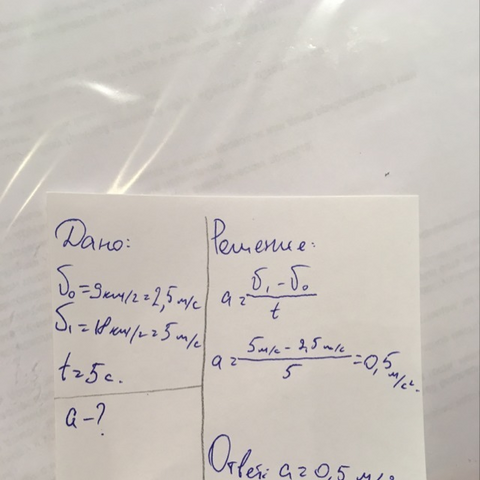 Дано:
υ₀ = 9 км/г = 2,5 м/с
υ₁ = 18 км/г = 5 м/с
t = 5 с.
a - ?
Решение:
a = υ₁ - υ₀ / t
a = 5 м/с - 2,5 м/с / 5 = 0,5 м/с².
Ответ: a = 0,5 м/с²